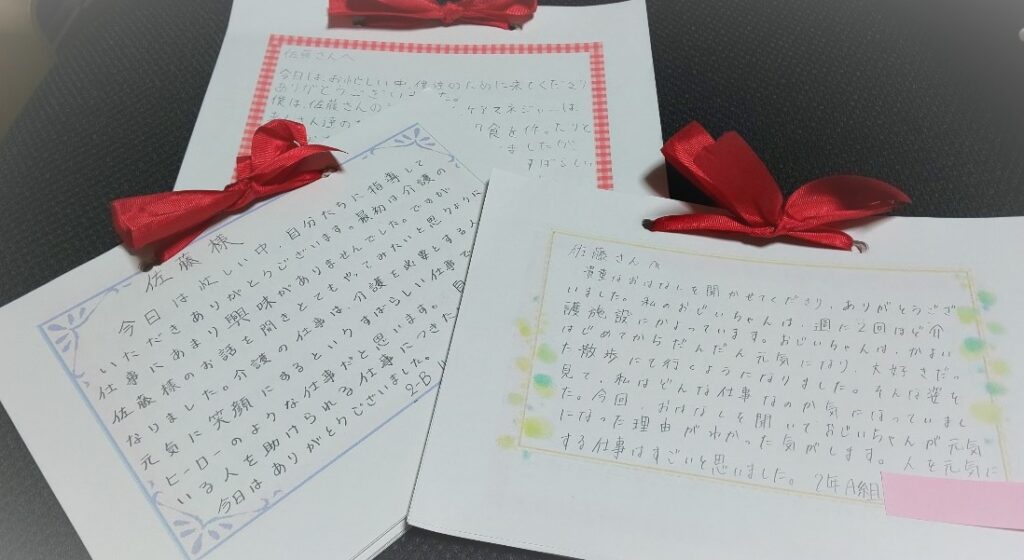 佐藤さんへ
今日は、お忙しい中、僕達のために来てくださり
ありがとうございました。
僕は、佐藤さんの
ケアマネジャーは
食を作ったりと
ましたが
すばらしい
佐藤様
今日は忙しい中、自分たちに指導して
いただきありがとうございます。最初は介護の
仕事にあまり興味がありませんでした。ですが
佐藤様のお話を聞きとてもやってみたいと思うように
なりました。介護の仕事は、介護を必要とする人
元気に笑顔にするというすばらしい仕事で
ヒーローのような仕事だと思います。自
いる人を助けられる仕事につきた
今日はありがとうございました。
2-B
佐藤さんへ
貴重なおはなしを聞かせてくださり、ありがとうござ
いました。私のおじいちゃんは、週に2回ほど介
護施設にかよっています。おじいちゃんは、かよい
はじめてからだんだん元気になり、大好きだっ
た散歩にも行くようになりました。そんな姿を
見て、私はどんな仕事なのか気になっていまし
た。今回、おはなしを聞いておじいちゃんが元気
になった理由がわかった気がします。人を元気に
する仕事はすごいと思いました。 2年A組